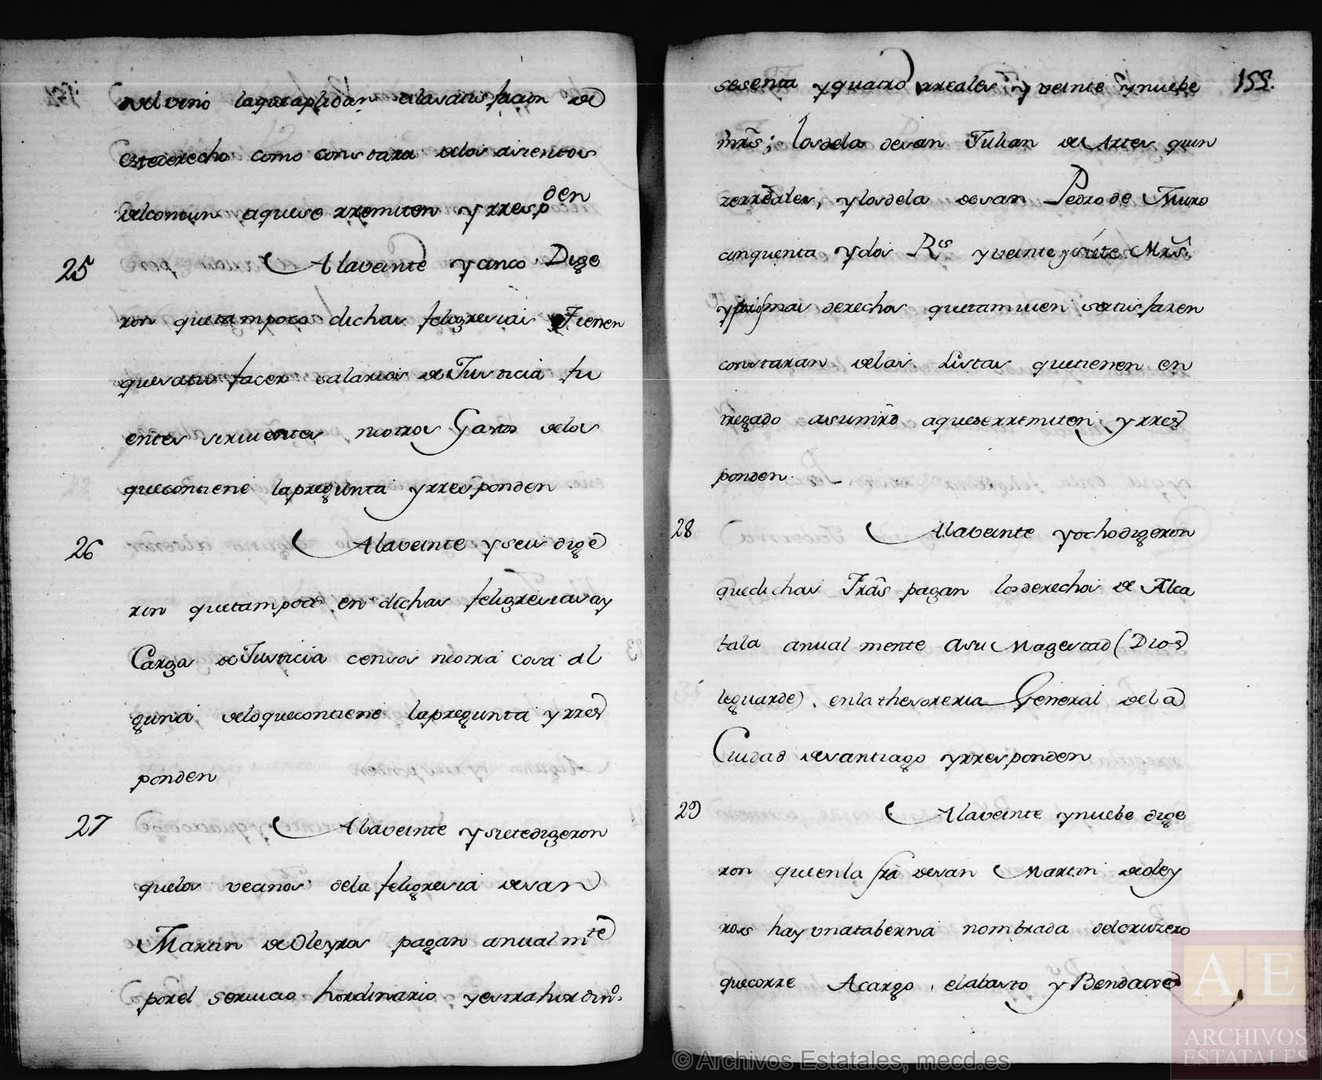 del vino laqueaplidan alasatisfacion de
estederecho como constara delos asientos
delcomun aquese rremiten y rresponden
25 Alaveinte y cinco Dige
ron quetampoco dichas feligresias tienen
quesatisfacer salarios deJusticia fu
entes sirvientes niotros Gastos delos
queconciene lapregunta yrresponden
26 Alaveinte y seis dige
ron quetampoco en dichas feligresias ay
Carga deJusticia censos niotra cosa al
guna deloqueconciene lapregunta y rres
ponden
27 Alaveinte ysietedigeron
quelos vecinos dela feligresia desan
Martin deOleyros pagan anualmte
porel servicio hordinario yestrahordino.
155.
sesenta yquatro rreales y veinte ynuebe
mrs; losdela desan Julian deArtes quin
zerreales, ylosdela desan Pedro de Muro
cinquenta ydos Rs yveinte ysiete Mrs.
ylosmas derechos quetamvien satisfazen
constaran delas Listas quetienen en
tregado asumrd aqueserremiten yrres
ponden.
28 Alaveinte yochodigeron
quedichas Fras pagan losderechos de Alca
bala anualmente asu Magestad (Dios
leguarde) enlathesoreria General dela
Ciudad desantiago yrresponden
29 Alaveinte ynuebe dige
ron queenla fra desan Martin deoley
ros hay unataberna nombrada delcruzero
quecorre Acargo, elabasto y
AE
ARCHIVOS
ESTATALES
© Archivos Estatales, mecd.es